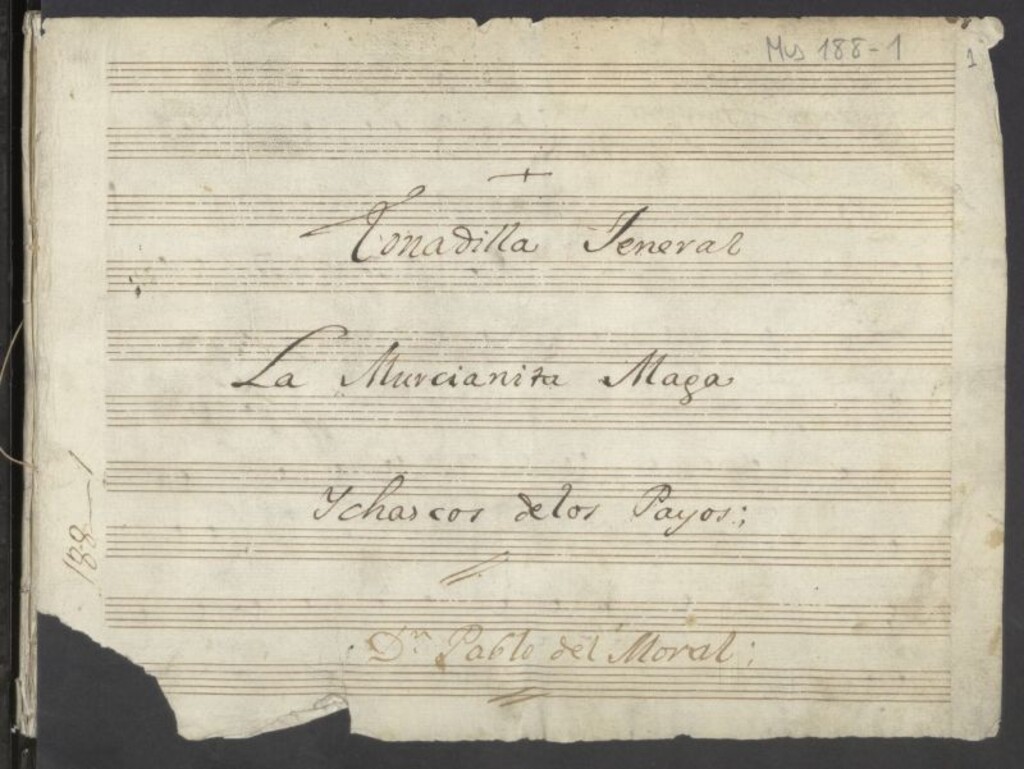 Mus 188-1
1
+
Tonadilla Jeneral
La Murcianita Maga
Ychascos delos Payos;
188-1
Dⁿ Pablo del Moral;